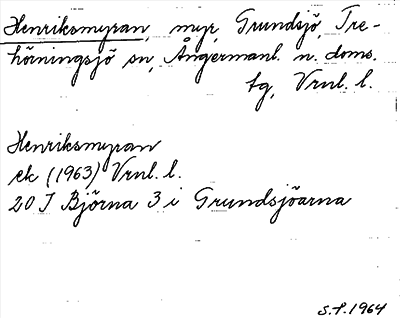 Henriksmyran, myr, Grundsjö, Tre-
hörningsjö sn, Ångermanl. n. doms.
tg, Vrnl. l.
Henriksmyran
ek (1963) Vrnl. l.
20 I Björna 3 i Grundsjöarna
S.F. 1964